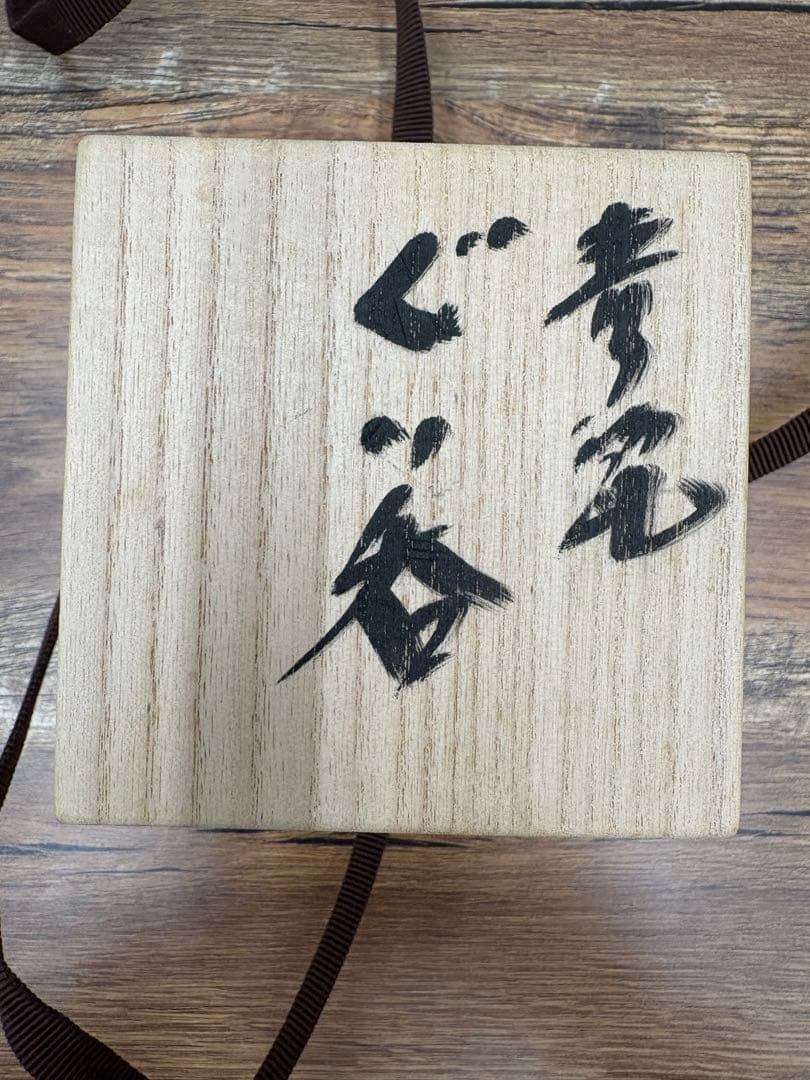 青瓷
ぐい呑